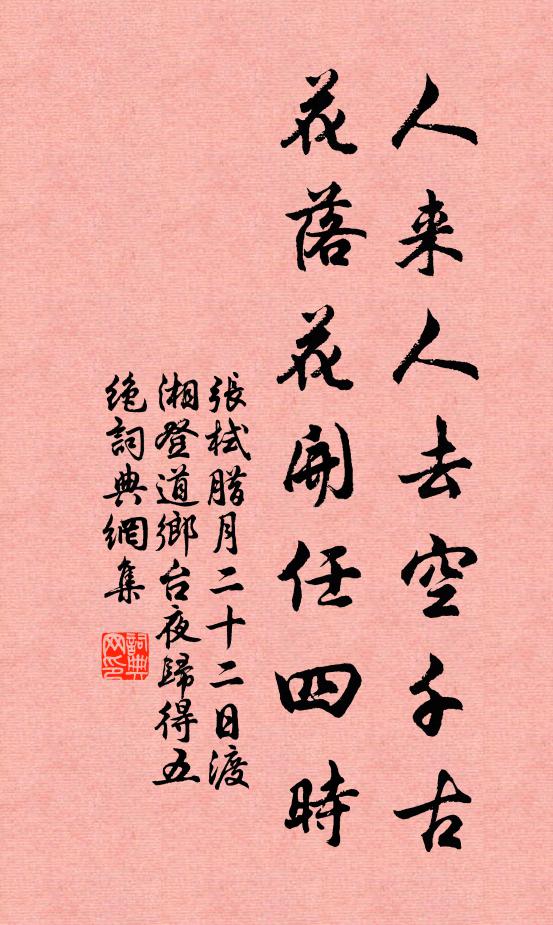 人来人去空千古
花落花開任四時
張栻臘月二十二日渡
湘登道鄉台夜歸得五
絶詞典網集
詞典网印